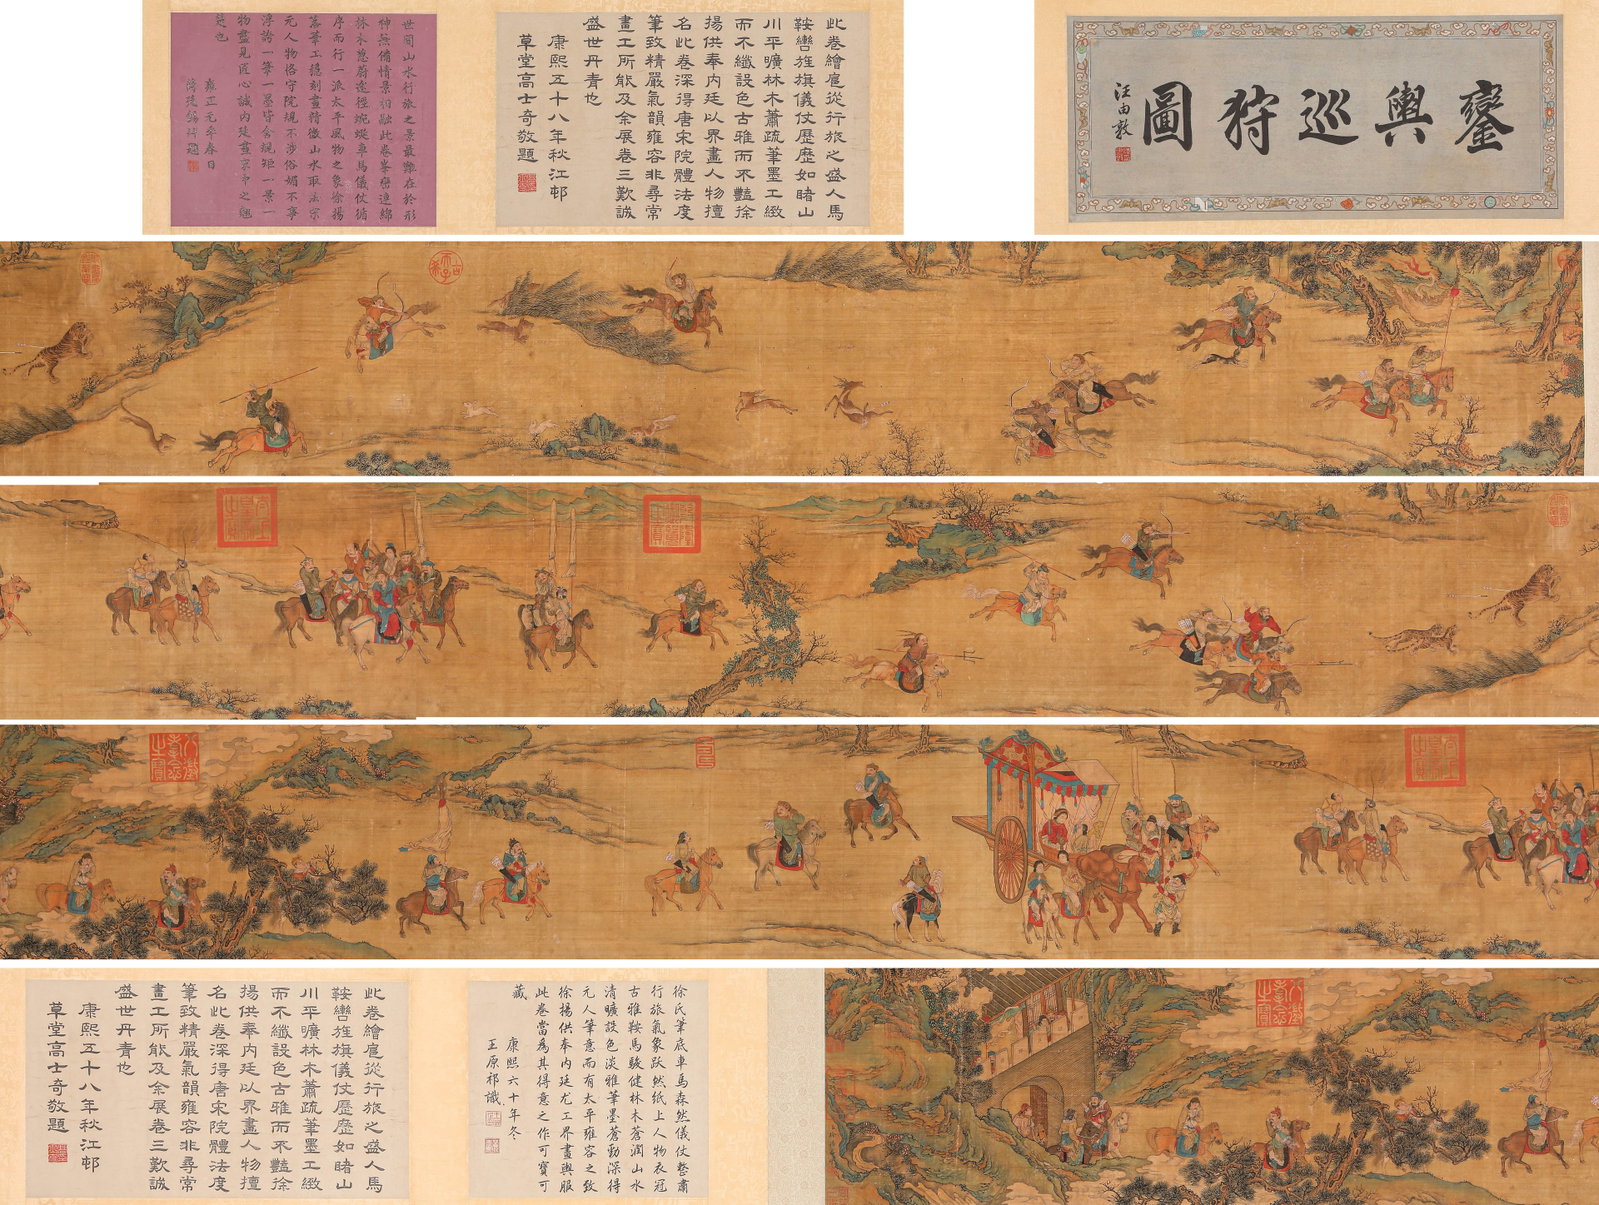 鑾輿巡狩圖
汪由敦
此卷繪扈從行旅之盛人馬
鞍轡旌旗儀仗歷歷如睹山
川平曠林木蕭疏筆墨工緻
而不纖設色古雅而不豔徐
揚供奉內廷以界畫人物擅
名此卷深得唐宋院體法度
筆致精嚴氣韻雍容非尋常
畫工所能及余展卷三歎誠
盛世丹青也
康熙五十八年秋江邨
草堂高士奇敬題
世間山水行旅之景最難在於形
神兼備情景相融此卷峯巒連綿
林木蔥蔚途徑蜿蜒車馬儀仗循
序而行一派太平風物之象徐揚
落筆工謹刻畫精微山水取法宋
元人物恪守院規不涉俗媚不事
浮誇一筆一墨皆含規矩一景一
物盡見匠心誠內廷畫苑中之翹
楚也
雍正元年春日
蔣廷錫拜題
古希天子
八徵耄念之寶
八徵耄念之寶
徐氏筆底車馬森然儀仗整肅
行旅氣象跃然紙上人物衣冠
古雅鞍馬駿健林木蒼潤山水
清曠設色淡雅筆墨蒼勁深得
元人筆意而有太平雍容之致
徐揚供奉內廷尤工界畫輿服
此卷當為其得意之作可寶可
藏
康熙六十年冬
王原祁識
此卷繪扈從行旅之盛人馬
鞍轡旌旗儀仗歷歷如睹山
川平曠林木蕭疏筆墨工緻
而不纖設色古雅而不豔徐
揚供奉內廷以界畫人物擅
名此卷深得唐宋院體法度
筆致精嚴氣韻雍容非尋常
畫工所能及余展卷三歎誠
盛世丹青也
康熙五十八年秋江邨
草堂高士奇敬題